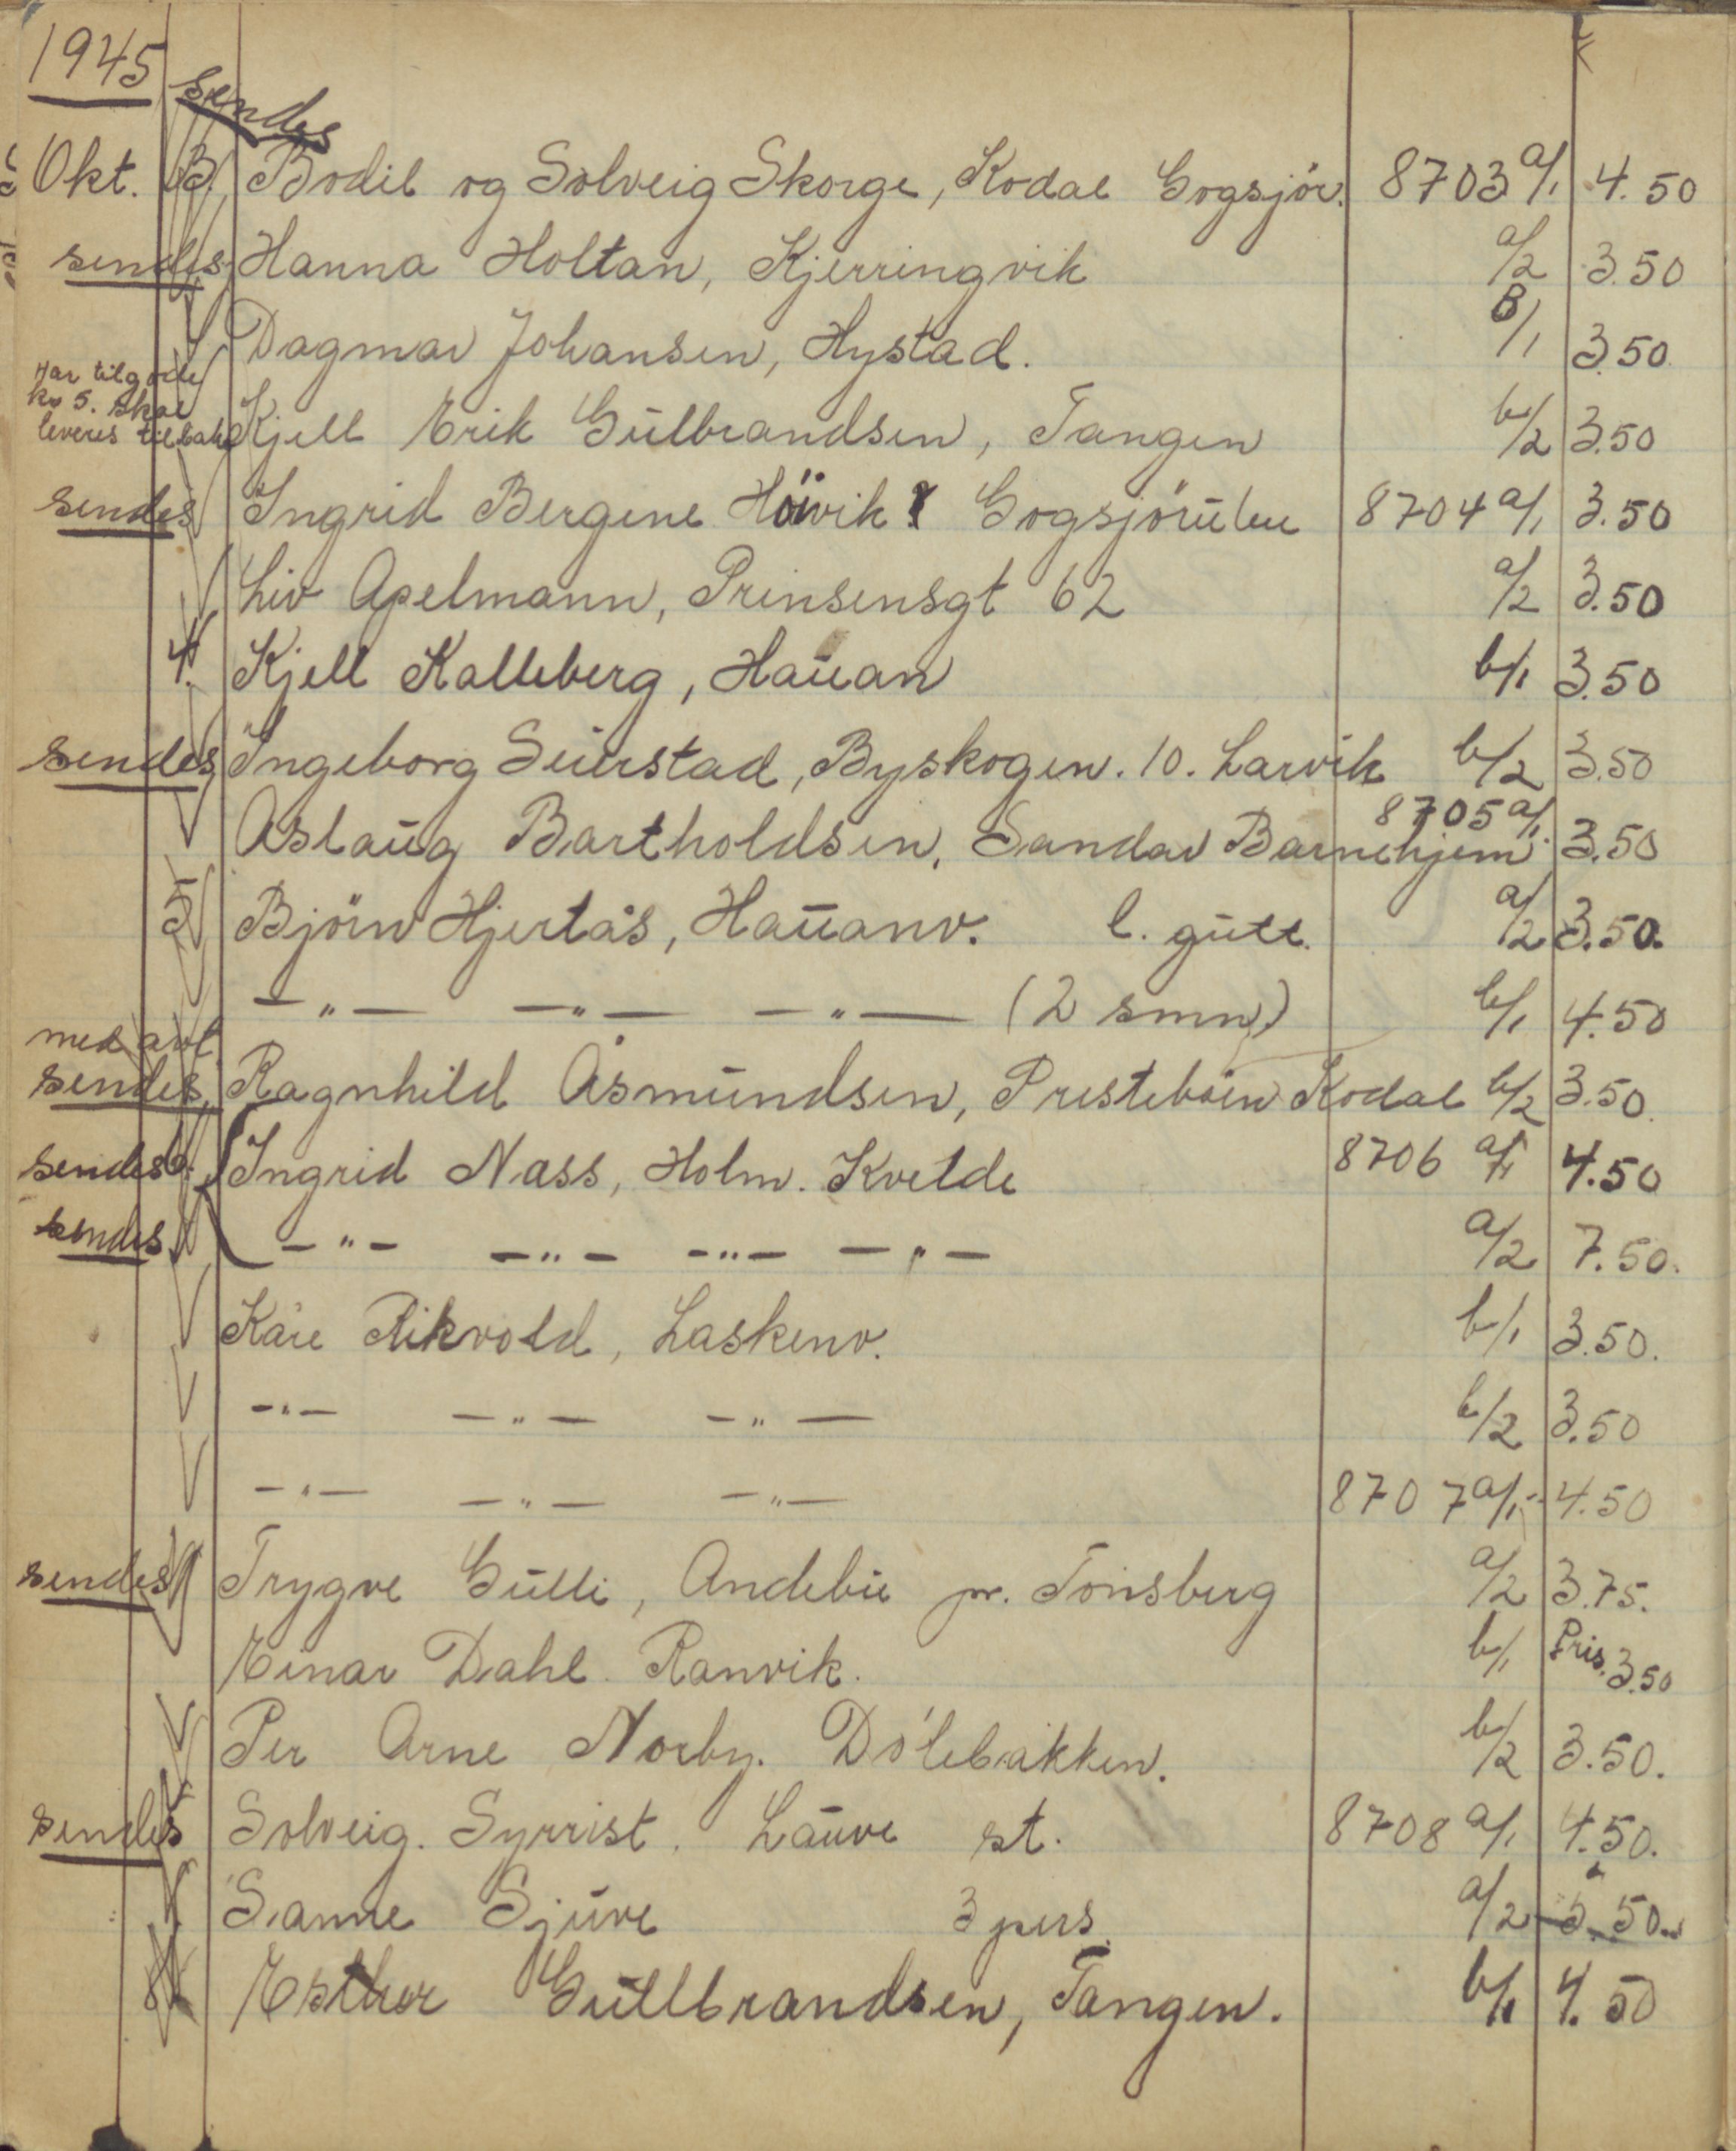 1945
sendes
Okt. 3. Bodil og Solveig Skorge, Kodal Gogsjör. 8703 a/1 4.50
sendes Hanna Holtan, Kjerringvik a/2 3.50
Dagmar Johansen, Hystad. B/1 3.50
Har tilgode
kr 5. Skal
leveres tilbake Kjell Erik Gulbrandsen, Tangen b/2 3.50
sendes Ingrid Bergene Höivik Gogsjö 8704 a/1 3.50
Liv Apelmann, Prinsensgt 62 a/2 3.50
4. Kjell Kalleberg, Hauan b/1 3.50
sendes Ingeborg Seierstad, Byskogen. 10. Larvik b/2 3.50
Aslaug Bartholdsen, Sandar Barnehjem 8705 a/1. 3.50
5 Björn Hjertås, Hauanv. l. gutt. a/2 3.50.
—„— —„— —„— (2 smn) b/1 4.50
med avt.
sendes, Ragnhild Åsmundsen, Presteböen Kodal b/2 3.50.
sendes 6. Ingrid Nass, Holm. Kvelde 8706 a/1 4.50
sendes —"— —„— —„— —„— a/2 7.50.
Kåre Rikvold, Laskenv. b/1 3.50.
—„— —„— —„— b/2 3.50
—„— —„— —„— 8707 a/1 4.50
sendes Trygve Gulli, Andebu pr. Tönsberg a/2 3.75.
Einar Dahl. Ranvik. b/1 Pris. 3.50
Per Arne Norby. Dölebakken. b/2 3.50.
sendes Solveig. Syrrist. Lauve st. 8708 a/1 4.50.
Sanne Sjuve 3 pers. a/2 5.50
8 Esther Gullbrandsen, Tangen. b/1 4.50